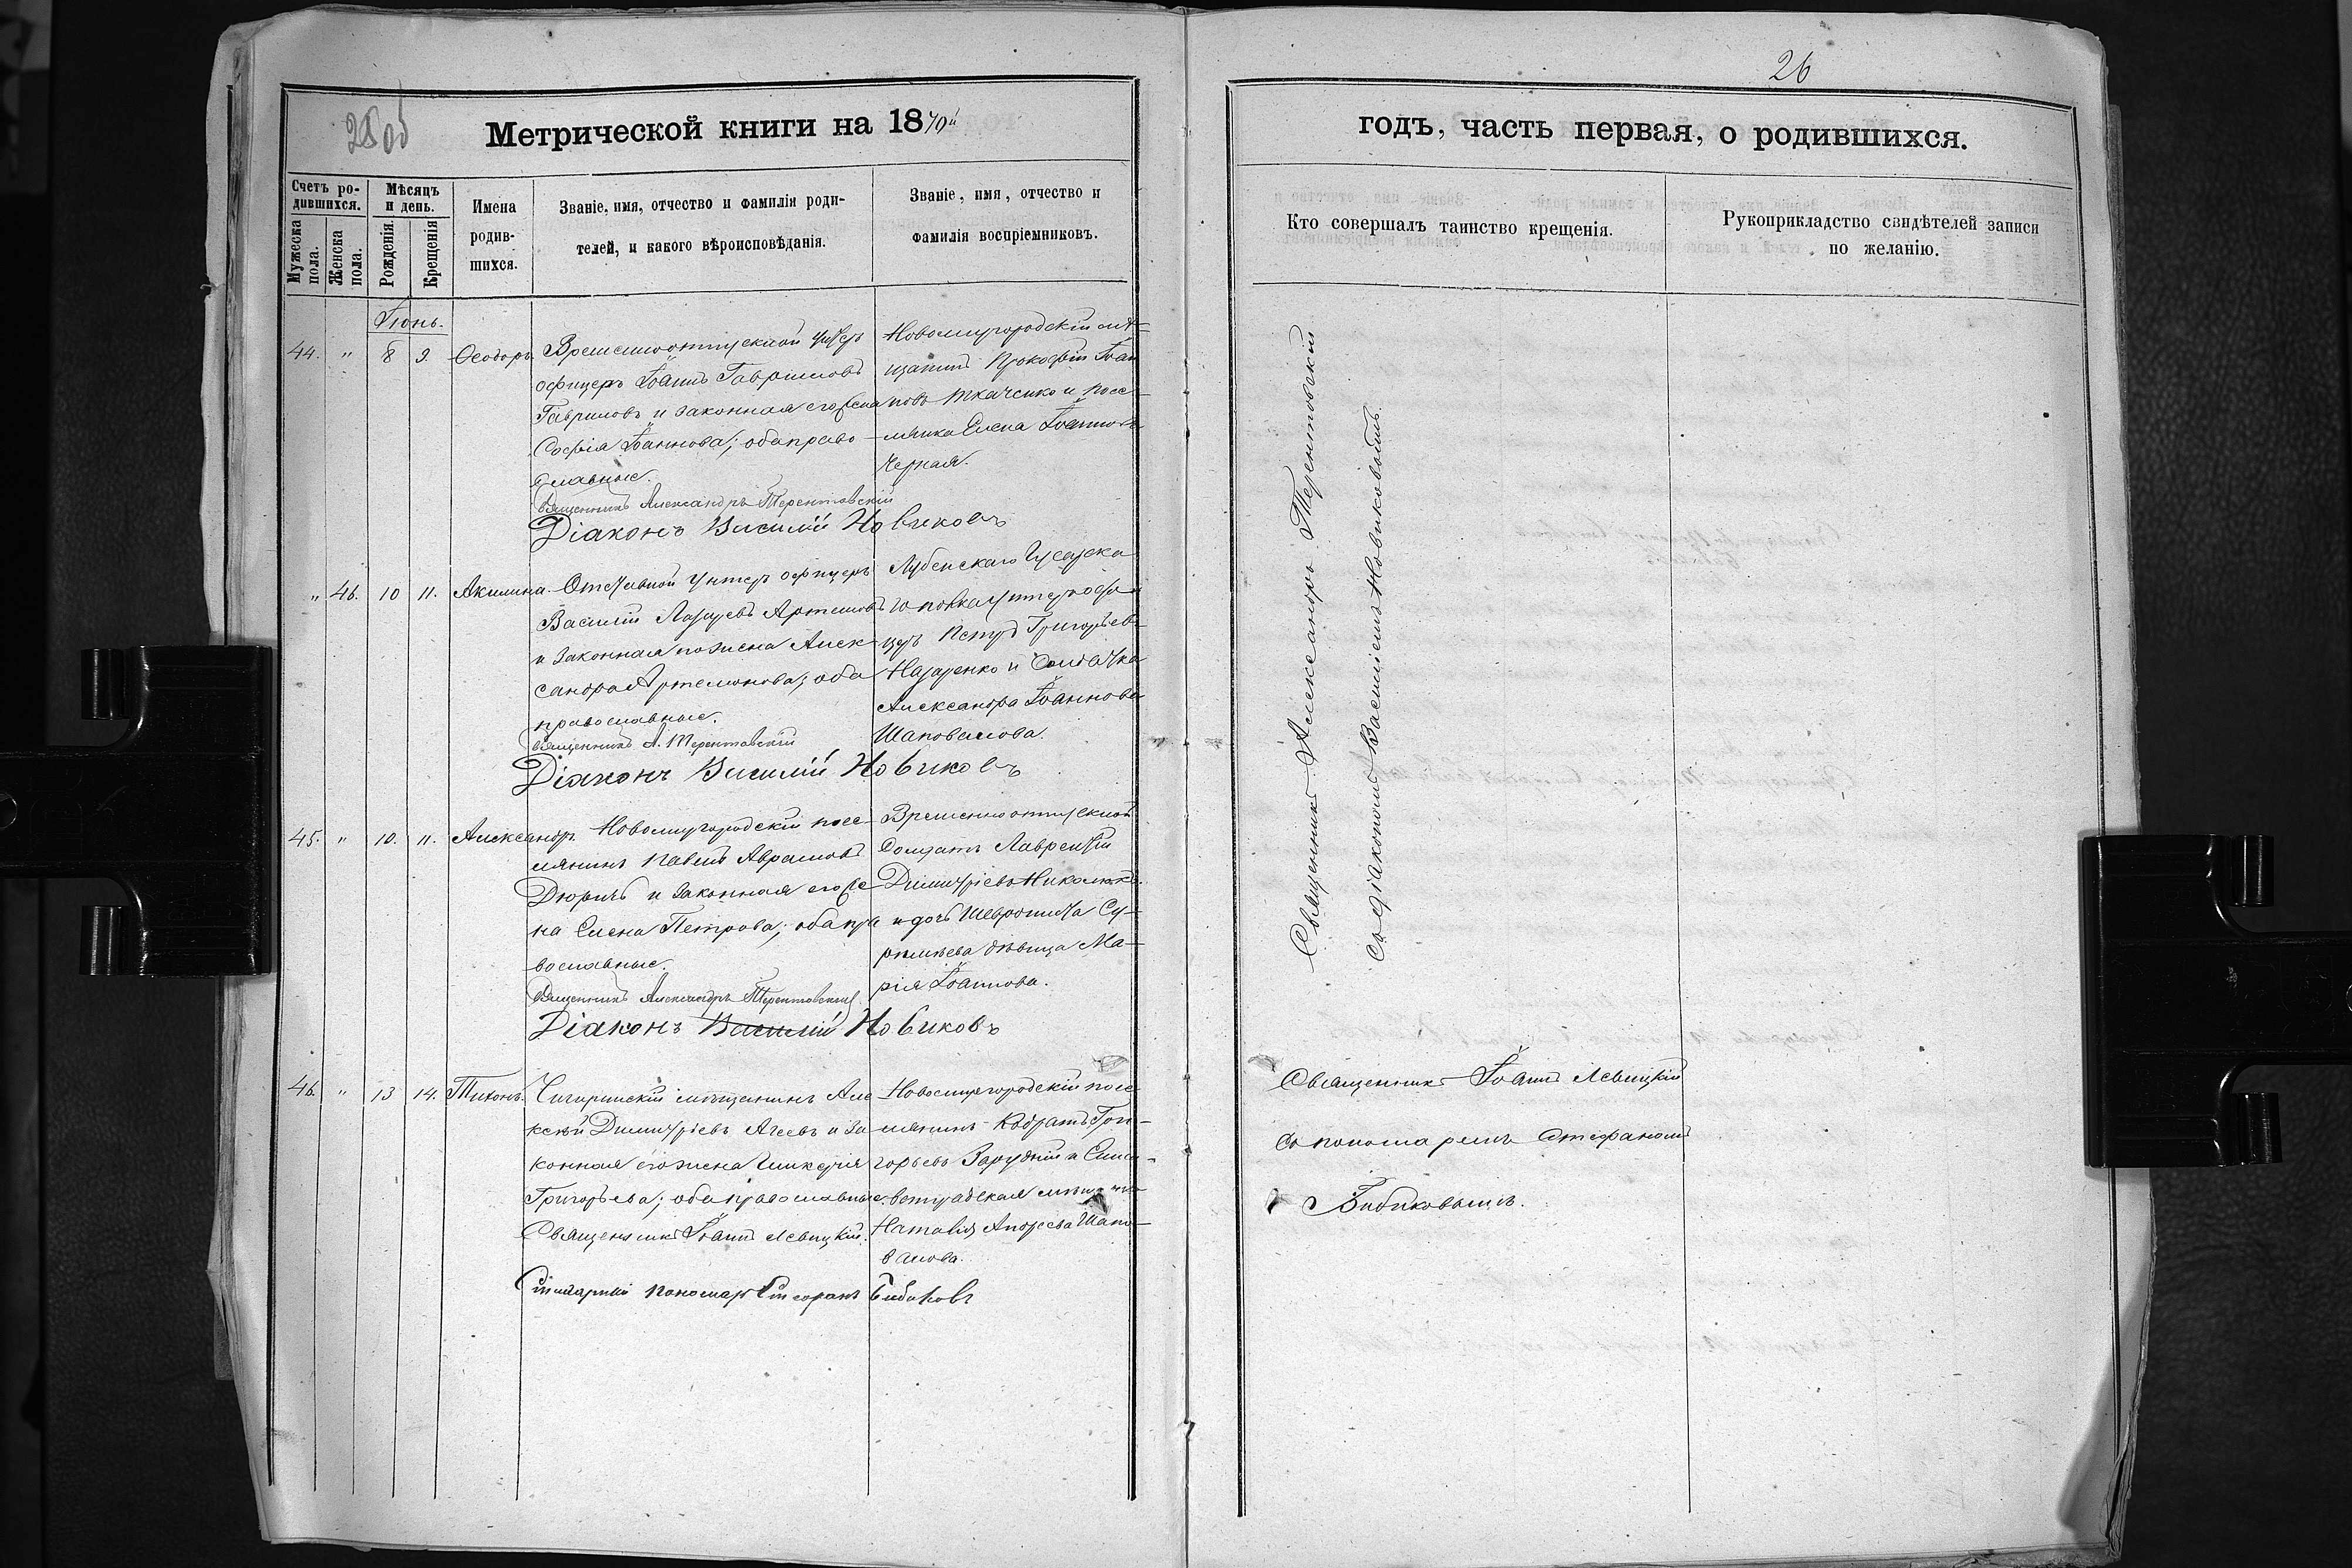 26
25об
Метрической книги на 1870й
годъ, часть первая, о родившихся.
Счетъ ро-
дившихся.
Мужеска пола.
Женска пола.
Мѣсяцъ
и день.
Рожденія.
Крещенія
Имена
родив-
шихся.
Званіе, имя, отчество и фамилія роди-
телей, и какого вѣроисповѣданія.
Званіе, имя, отчество и
фамилія воспріемниковъ.
Кто совершалъ таинство крещенія.
Рукоприкладство свидѣтелей записи
по желанію.
Іюнь.
44. " 8 9. Ѳеодоръ.
Временноотпускной унтеръ
офицеръ Іоаннъ Гавриловъ
Гавриловъ и законная его жена
Софія Іоаннова; оба право-
славные.
Священникъ Александръ Терентовскій
Діаконъ Василій Новиковъ
Новомиргородскій мѣ-
щанинъ Прокофій Іоан
новъ Ткаченко и посе-
лянка Елена Іоаннова
Черная.
" 46. 10 11. Акилина.
Отставной унтеръ офицеръ
Василій Лазаревъ Артемовъ
и законная его жена Алек-
сандра Артемонова; оба
православные.
Священникъ А. Терентовскій
Діаконъ Василій Новиковъ
Лубенскаго Гусарска
го полка унтеръ офи
церъ Петръ Григорьевъ
Назаренко и Солдатка
Александра Іоаннова
Шаповалова.
45. " 10. 11. Александръ
Новомиргородскій посе-
лянинъ Павелъ Аврамовъ
Дюричъ и законная его же
на Елена Петрова; оба пра
вославные.
Священникъ Александръ Терентовскій
Діаконъ Василій Новиковъ
Временноотпускной
Солдатъ Лаврентій
Димитріевъ
и дочь
дѣвица Ма-
рія Іоаннова.
46. " 13 14. Тихонъ.
Чигиринскій мѣщанинъ Але
ксѣй Димитріевъ Агеевъ и за
конная его жена Гликерія
Григорьева; оба православные.
Священникъ Іоаннъ Левицкій.
пономарь Стефанъ Бибиковъ
Новомиргородскій посе
лянинъ Кодратъ Гри-
горьевъ Зарудній и Елиса-
ветградская мѣщанка
Наталія Андреева Шапо-
валова.
Священникъ Александръ Терентовскій
Съ діакономъ Василіемъ Новиковымъ.
Священникъ Іоаннъ Левицкій
съ пономаремъ Стефаномъ
Бибиковымъ.